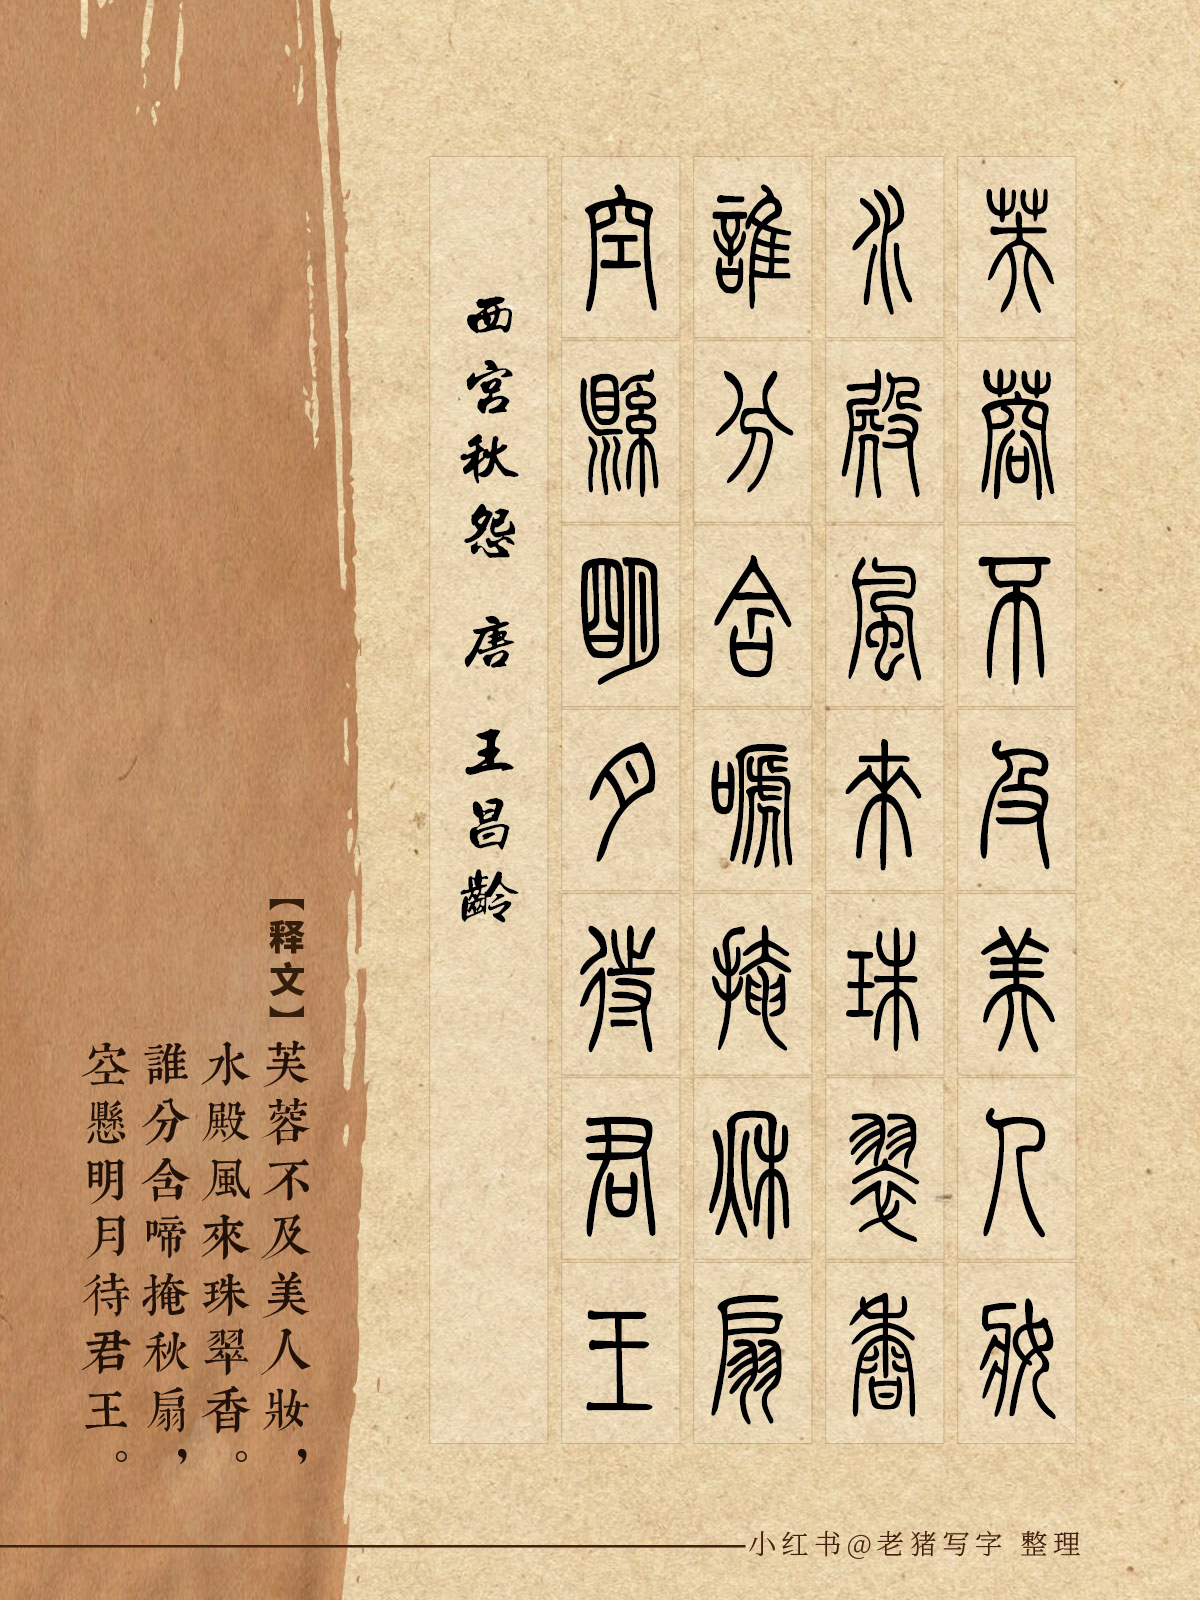 芙蓉不及美人妝
水殿風來珠翠香
誰分含嗁掩秋扇
空縣明月待君王
西宮秋怨 唐 王昌齡
【释文】
芙蓉不及美人妝，
水殿風來珠翠香。
誰分含啼掩秋扇，
空懸明月待君王。
小红书@老猪写字 整理